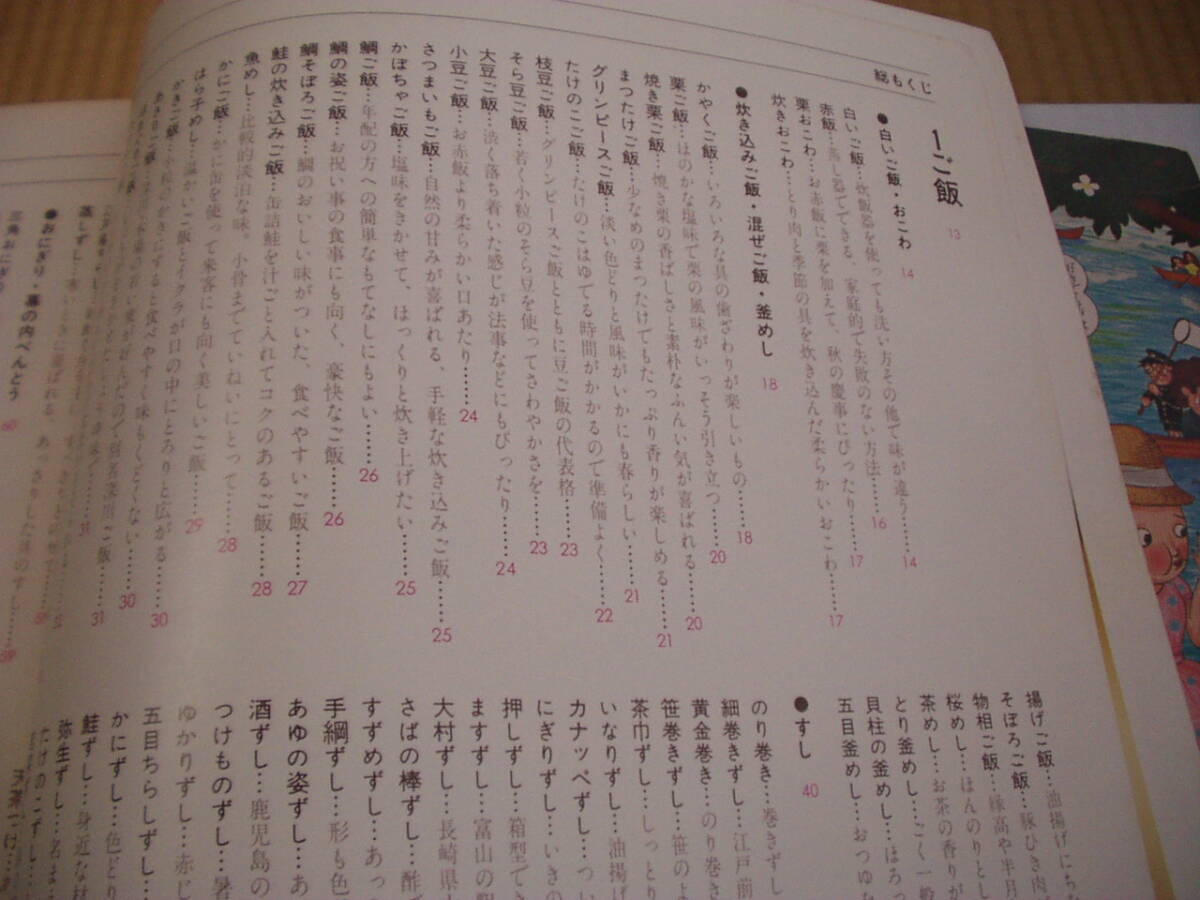 総もくじ
1ご飯 13
●白いご飯・おこわ 14
白いご飯…炊飯器を使っても洗い方その他で味が違う……14
赤飯…蒸し器でできる、家庭的で失敗のない方法……16
栗おこわ…お赤飯に栗を加えて、秋の慶事にぴったり……17
炊きおこわ…とり肉と季節の具を炊き込んだ柔らかいおこわ……17
●炊き込みご飯・混ぜご飯・釜めし 18
かやくご飯…いろいろな具の歯ざわりが楽しいもの……18
栗ご飯…ほのかな塩味で栗の風味がいっそう引き立つ……20
焼き栗ご飯…焼き栗の香ばしさと素朴なふんい気が喜ばれる……20
まつたけご飯…少なめのまったけでもたっぷり香りが楽しめる……21
グリンピースご飯…淡い色どりと風味がいかにも春らしい……21
たけのこご飯…たけのこはゆでる時間がかかるので準備よく……22
枝豆ご飯…グリンピースご飯とともに豆ご飯の代表格……23
そら豆ご飯…若く小粒のそら豆を使ってさわやかさを……23
大豆ご飯…渋く落ち着いた感じが法事などにもぴったり……24
小豆ご飯…お赤飯より柔らかい口あたり……24
さつまいもご飯…自然の甘みが喜ばれる、手軽な炊き込みご飯……25
かぼちゃご飯…塩味をきかせて、ほっくりと炊き上げたい……25
鯛ご飯…年配の方への簡単なもてなしにもよい……26
鯛の姿ご飯…お祝い事の食事にも向く、豪快なご飯……26
鯛そぼろご飯…鯛のおいしい味がついた、食べやすいご飯……27
鮭の炊き込みご飯…缶詰鮭を汁ごと入れてコクのあるご飯……28
魚めし…比較的淡泊な味。小骨までていねいにとって……28
かにご飯…かに缶を使って来客にも向く美しいご飯……29
はら子めし…温かいご飯とイクラが口の中にとろりと広がる……30
かきご飯…小粒のかきにすると食べやすく味もくどくない……30
31
蒸しずし
31
●おにぎり・幕の内べんとう 60
三角おにぎり
59
揚げご飯…油揚げにち
そぼろご飯…豚ひき肉
物相ご飯…縁高や半月
桜めし…ほんのりとし
茶めし…お茶の香りが
とり釜めし…ごく一般
貝柱の釜めし…ほろっ
五目釜めし…おつゆな
●すし 40
のり巻き…巻きずし
細巻きずし…江戸前
黄金巻き…のり巻き
笹巻きずし…笹のよ
茶巾ずし…しっとり
いなりずし…油揚げ
カナッペずし…つい
にぎりずし…いきの
押しずし…箱型でき
ますずし…富山の
大村ずし…長崎県
さばの棒ずし…酢
すずめずし…あっ
手綱ずし…形も色
あゆの姿ずし…あ
酒ずし…鹿児島の
つけものずし…暑
ゆかりずし…赤じ
五目ちらしずし…
かにずし…色どり
鮭ずし…身近な材
弥生ずし…名ま
たけのこずし…